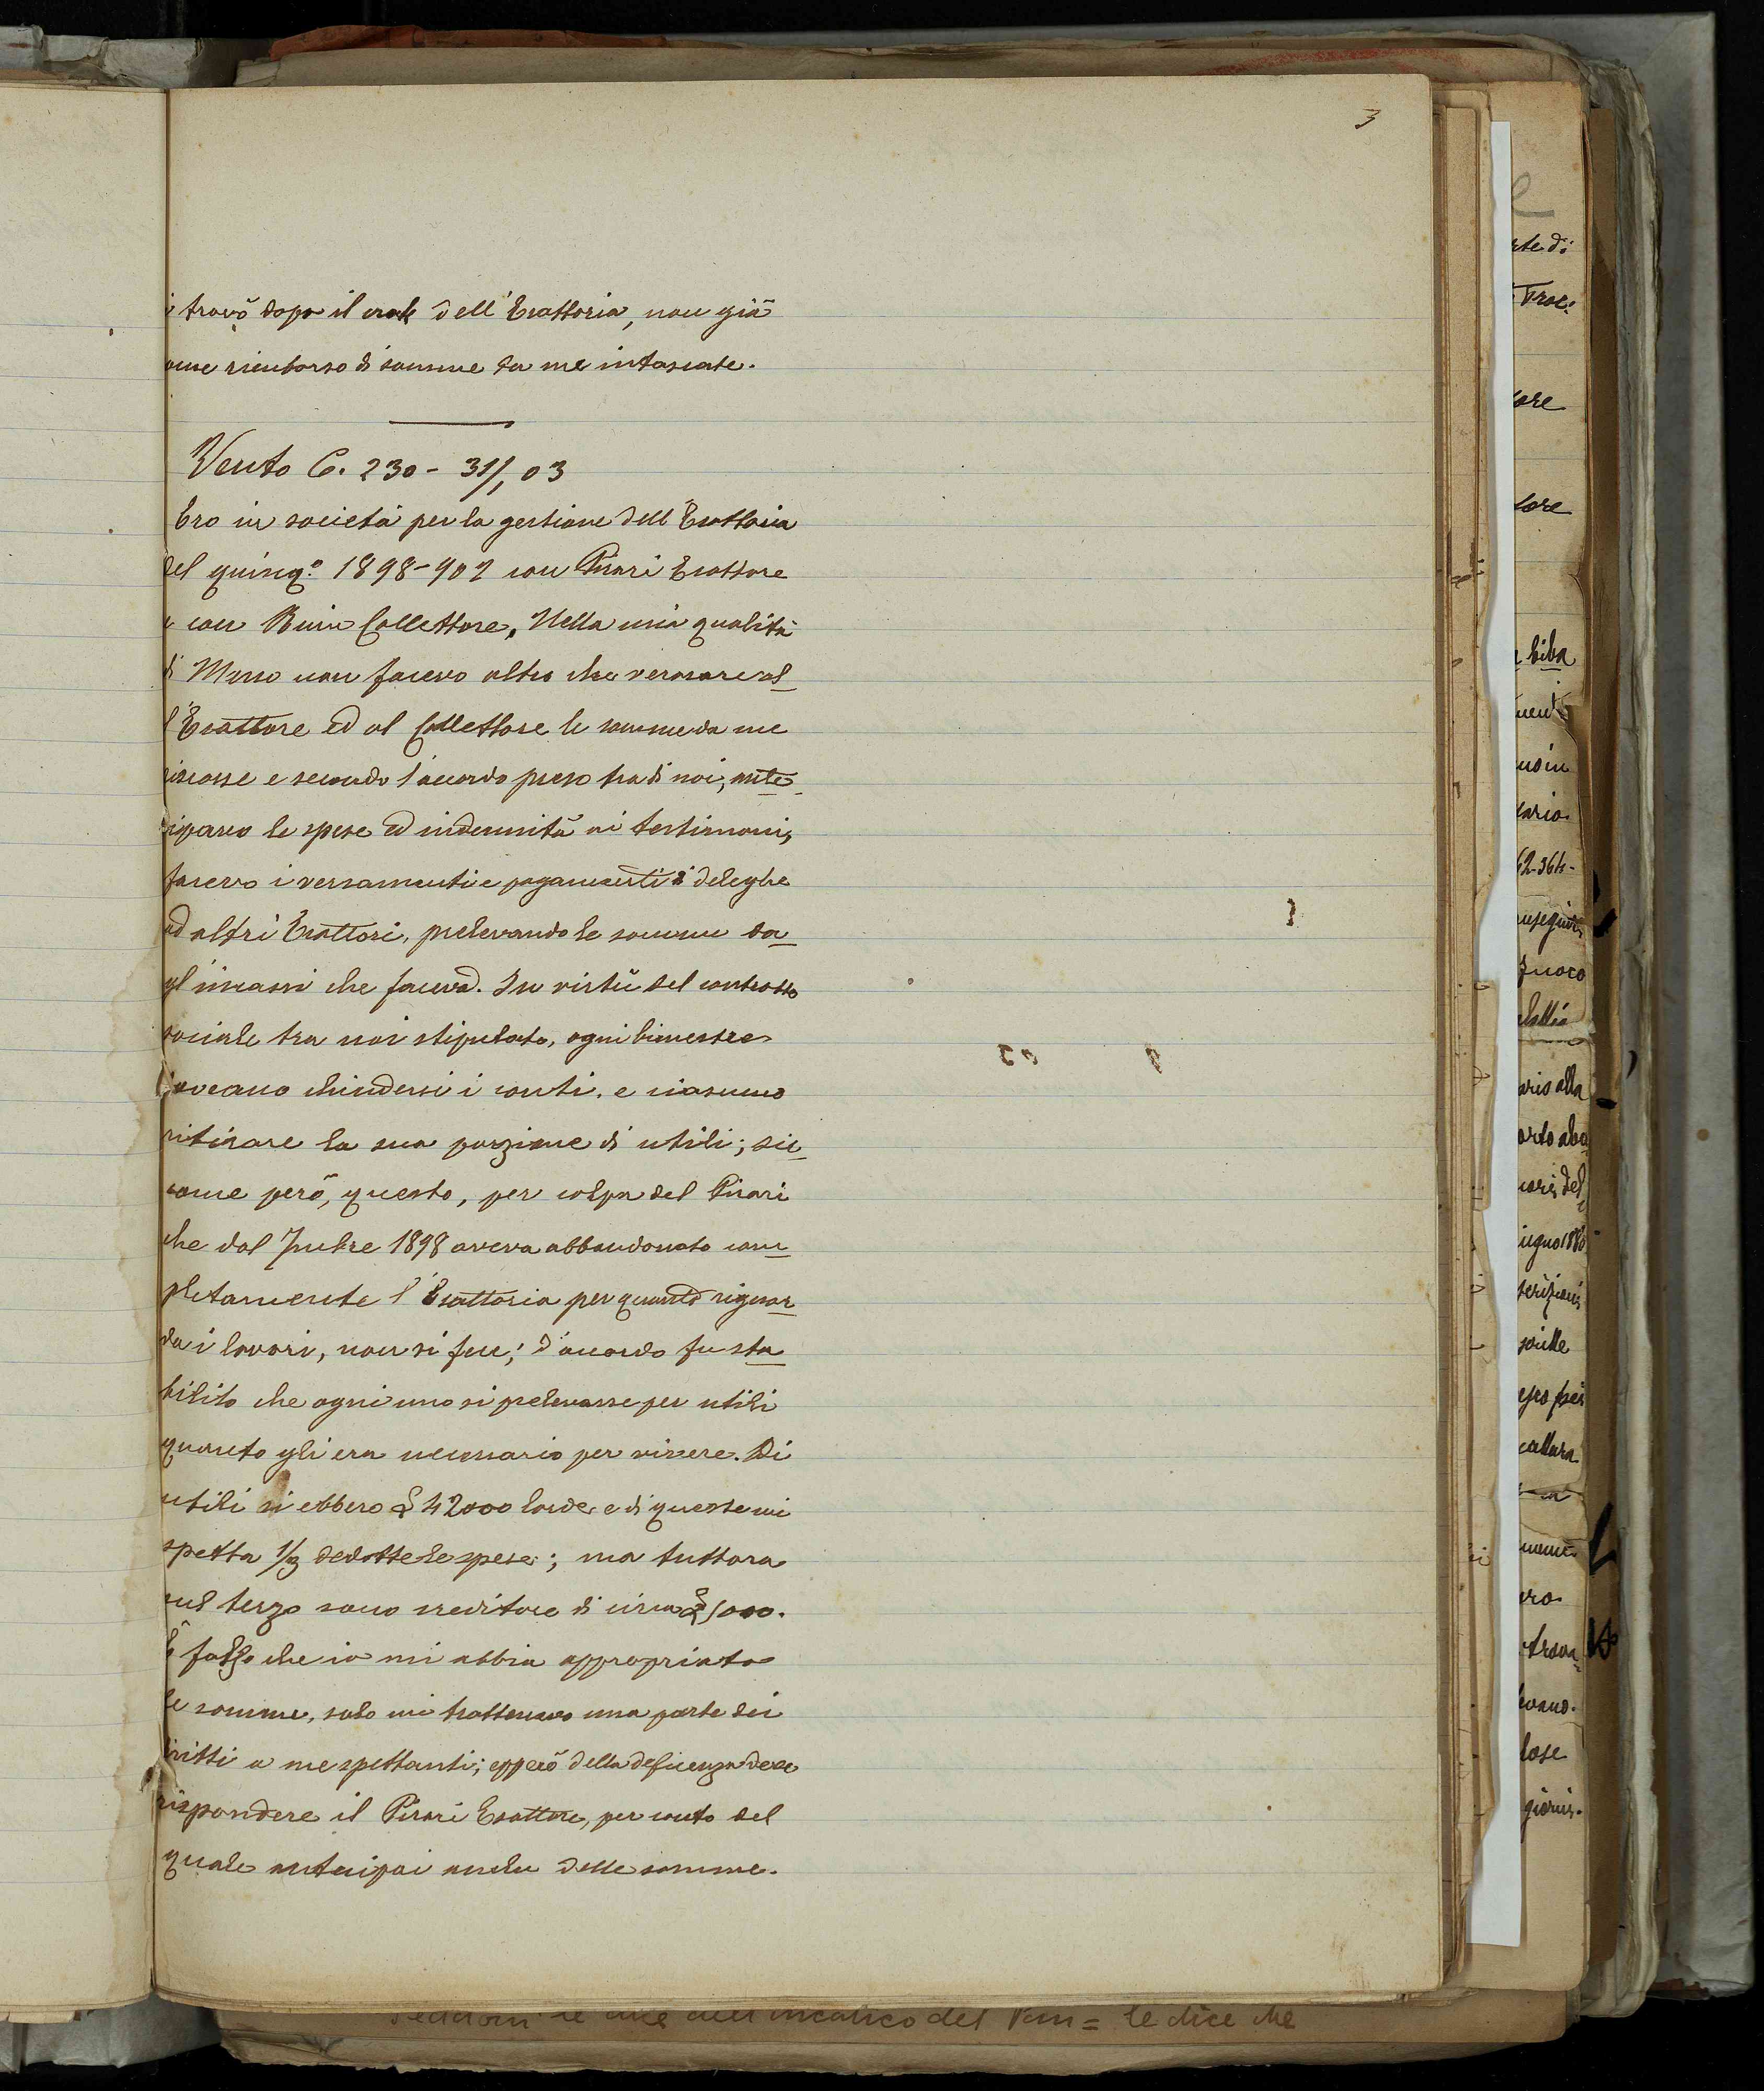 3
i trovò dopo il crak dell'Esattoria, non già
ome rimborso di somme da me intascate.
Vento C. 230 - 31/1 03
Ero in società per la gestione dell'Esattoria
del quinq.º 1898-902 con Pirari Esattore
e con Collettore. Nella mia qualità
di Messo non facevo altro che versare al_
l'Esattore ed al Collettore le somme da me
riscosse e secondo l'accordo preso tra di noi, ante_
cipavo le spese ed indennità ai testimoni,
facevo i versamenti e pagamenti di deleghe
ad altri Esattori, prelevando le somme da_
gl'incassi che facevo. In virtù del contratto
sociale tra noi stipulato, ogni bimestre
doveano chiudersi i conti, e ciascuno
ritirare la sua porzione di utili; sic_
come però, questo, per colpa del Pirari
che dal 7mbre 1898 aveva abbandonato com_
pletamente l'Esattoria per quanto riguar_
da i lavori, non si fece; d'accordo fu sta_
bilito che ogni uno si prelevasse per utili
quanto gli era necessario per vivere. Di
utili si ebbero £ 42000 lorde e di queste mi
spetta 1/3 dedotte le spese; ma tuttora
sul terzo sono creditore di circa £ 1000.
È falso che io mi abbia appropriato
le somme, solo mi trattenevo una parte dei
diritti a me spettanti; epperò della deficenza deve
rispondere il Pirari Esattore, per conto del
quale anticipai anche delle somme.
rte di
ore
tore
ario
62-364-
fuoco
aris alla
iugno 1880
lose
giorni.
del le dice che